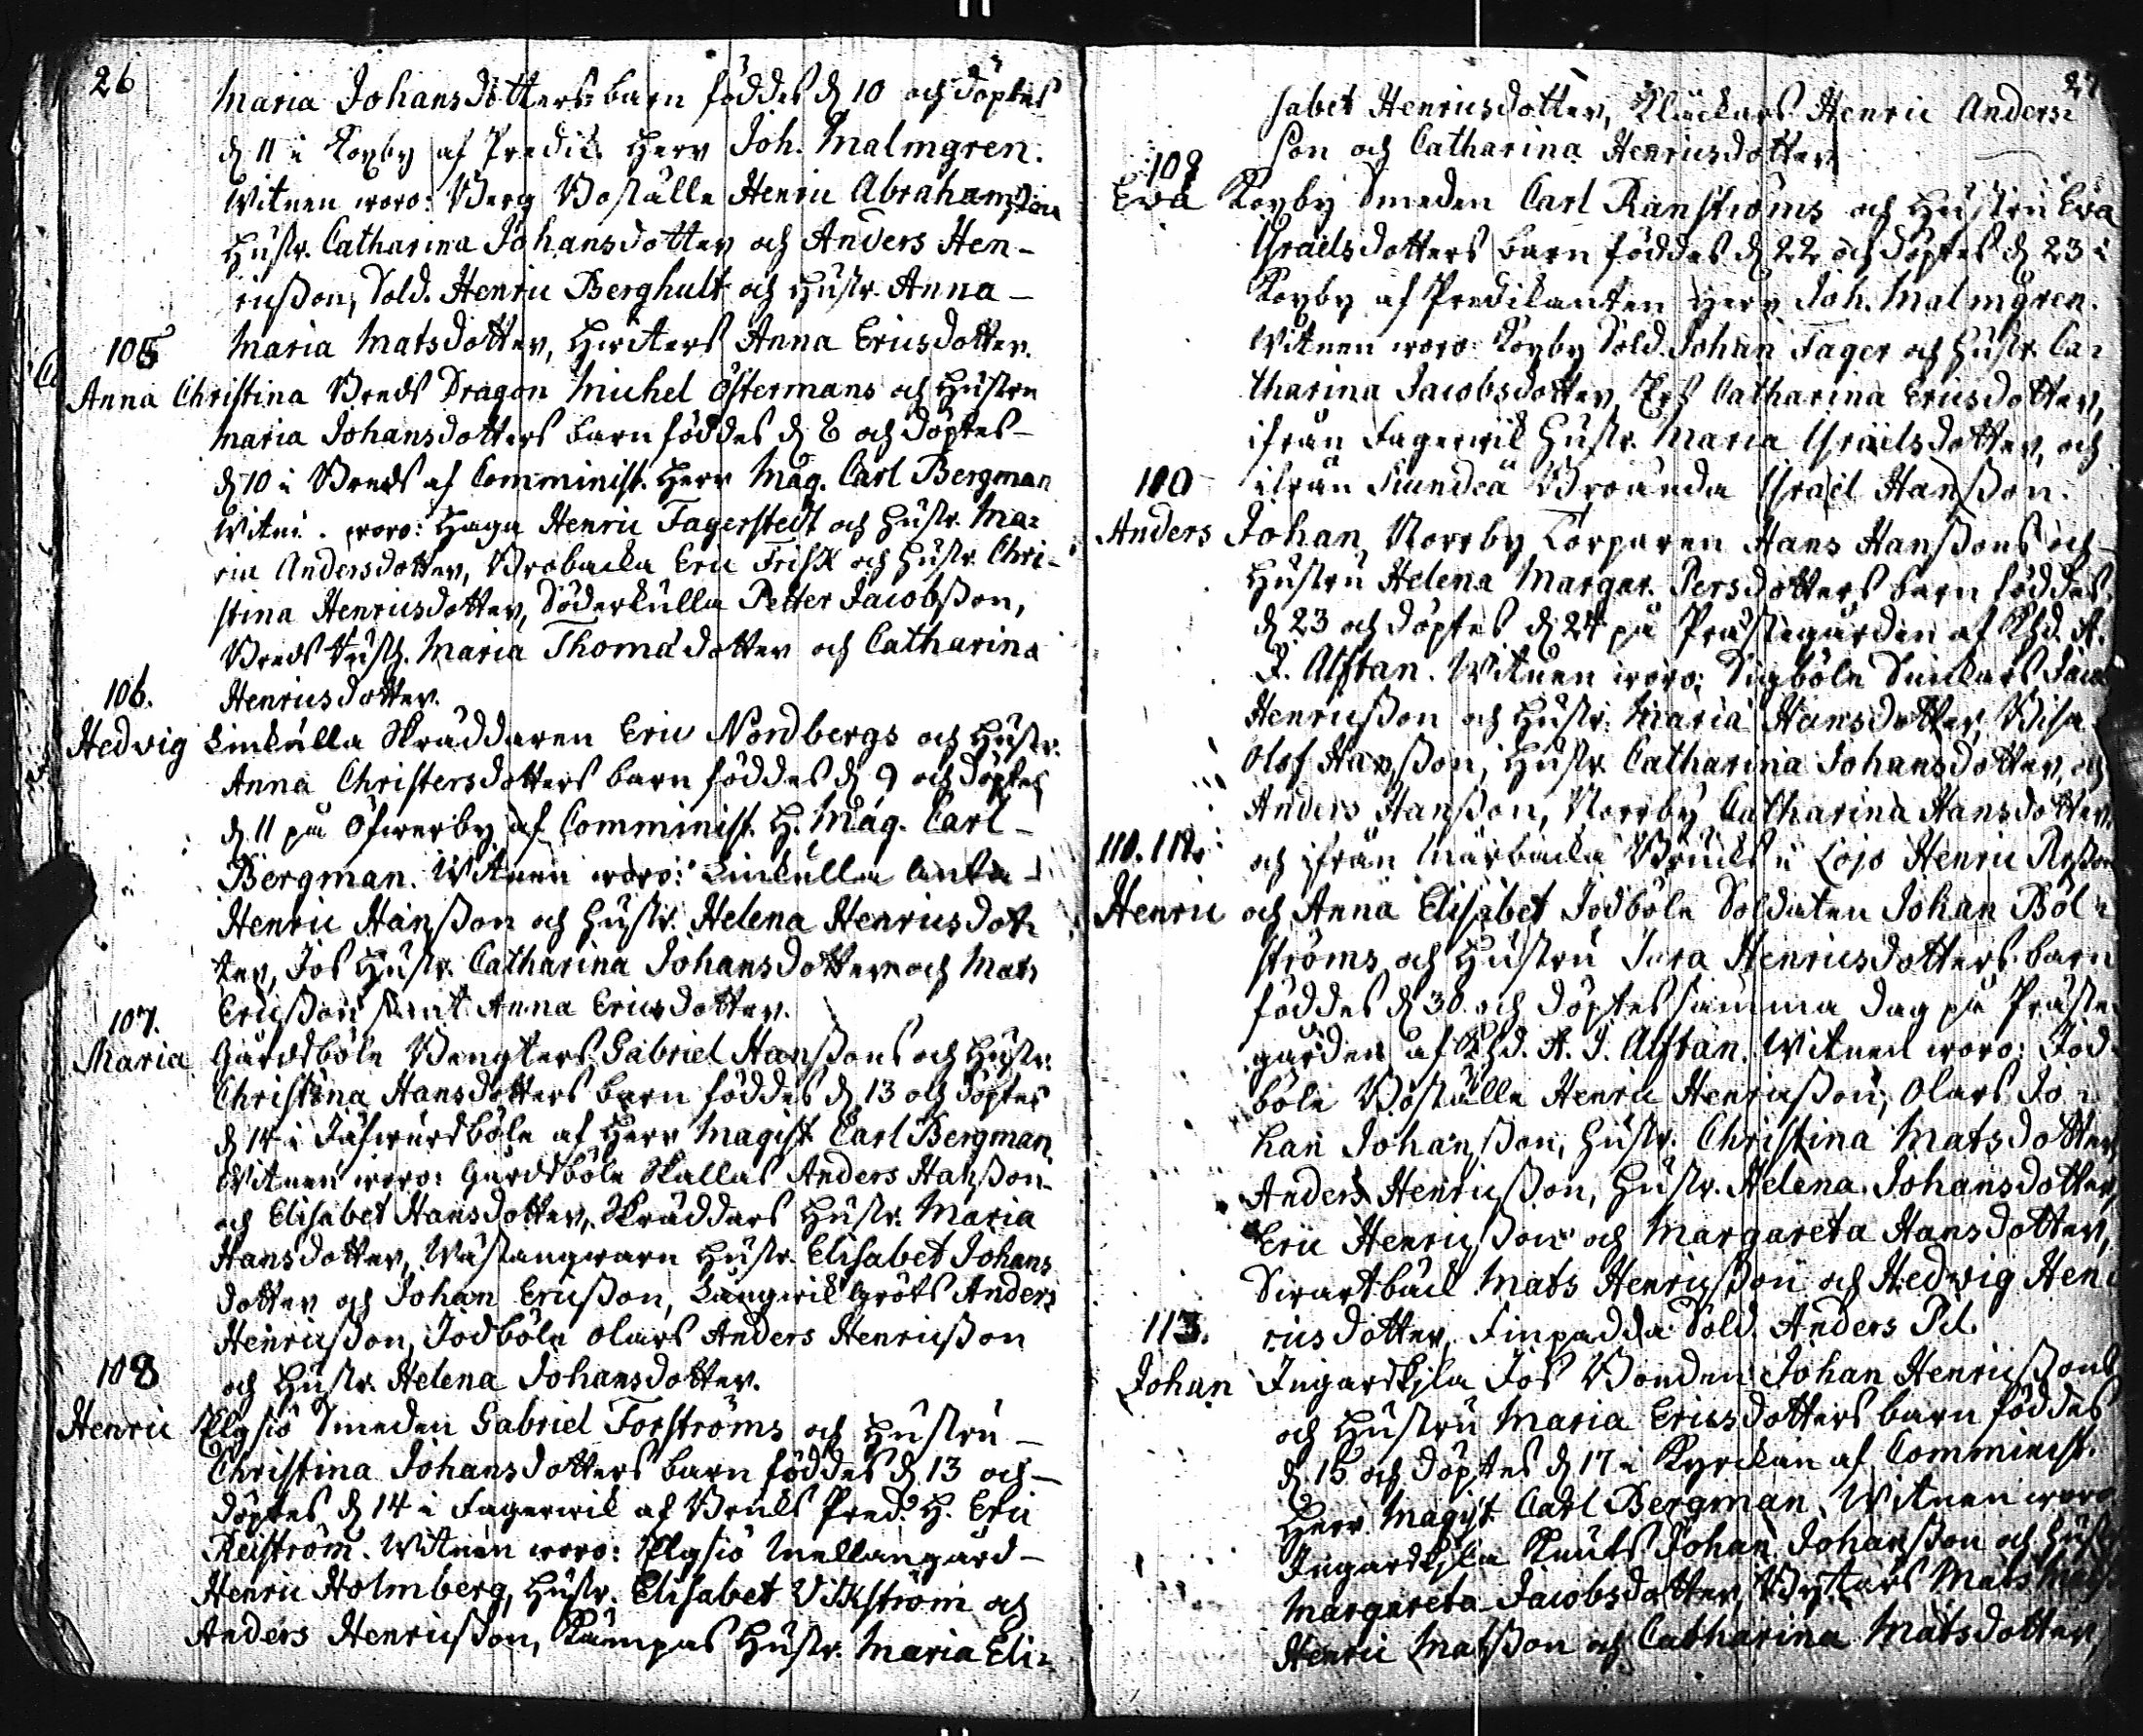 26
Maria Johansdotters barn föddes d 10 och döptes
d 11 i Koxby af Predic. Herr Joh. Malmgren.
Witnen woro: Berg Boställe Henric Abrahamsson
Hustr. Catharina Johansdotter och Anders Hen-
ricsson, Sold. Henric Berghult och Hustr. Anna
Maria Matsdotter, Anna Ericsdotter.
105
Anna Christina Breds Dragon Michel Östermans och Hustru
Maria Johansdotters barn föddes d 8 och döptes
d 10 i Breds af Comminist. Herr Mag. Carl Bergman
Witn. woro: Haga Henric Fagerstedt och Hustr. Ma=
ria Andersdotter, Brobacka Eric Frisk och Hustr. Chri-
stina Henricsdotter, Söderkulla Petter Jacobsson,
Breds Maria Thomadotter och Catharina
Henricsdotter.
106.
Hedvig Linkulla Skräddaren Eric Nordbergs och Hustr.
Anna Christersdotters barn föddes d 9 och döptes
d 11 på Öfwerby af Comminist. H. Mag. Carl
Bergman. Witnen woro: Linkulla
Henric Hansson och Hustr. Helena Henricsdot=
ter, Jos Hustr. Catharina Johansdotter och Mats
Ericsson samt Anna Ericsdotter.
107.
Maria Gårdsböle Bengters Gabriel Hanssons och Hustr.
Christina Hansdotters barn föddes d 13 och döptes
d 14 i af Herr Magist. Carl Bergman
Witnen woro: Gårdsböle Skallas Anders Hansson
och Elisabet Hansdotter, Skräddars Hustr. Maria
Hansdotter, Wästangwarn Hustr. Elisabet Johans
dotter och Johan Ericsson, Långwik Gröts Anders
Henricsson, Jodböle Olars Anders Henricsson
och Hustr. Helena Johansdotter.
108
Henric Elgsiö Smeden Gabriel Forströms och Hustru
Christina Johansdotters barn föddes d 13 och
döptes d 14 i Fagerwik af Bruks Pred. H. Eric
Reiström. Witnen woro: Elgsiö Mellangård
Henric Holmberg, Hustr. Elisabet Vikström och
Anders Henricsson, Kämpas Hustr. Maria Eli=
27
sabet Henricsdotter, Klockars Henric Anders=
son och Catharina Henricsdotter
109
Eva Koxby Smeden Carl Ranströms och Hustru Eva
Israelsdotters barn föddes d 22 och döptes d 23 i
Koxby af Predikanten Herr Joh. Malmgren.
Witnen woro: Koxby Sold. Johan Fager och Hustr. Ca=
tharina Jacobsdotter, Catharina Ericsdotter,
ifrån Fagerwik Hustr. Maria Israelsdotter, och
ifrån Siundeå Israel Hansson.
110
Anders Johan, Norrby Torparen Hans Hanssons och
Hustru Helena Margar. Persdotters barn föddes
d 23 och döptes d 24 på Prästegården af Khd. A.
J. Alftan. Witnen woro: Sigböle
Henricsson och Hustr. Maria Hansdotter,
Olof Hansson, Hustr. Catharina Johansdotter, och
Anders Hansson, Norrby Catharina Hansdotter
och ifrån Bruk i Lojo Henric
Henric och Anna Elisabet Jodböle Soldaten Johan Böl=
ströms och Hustru Henricsdotters barn
föddes d 30 och döptes samma dag på Präste
gården af Khd. A. J. Alftan. Witnen woro: Jod
böle Boställe Henric Henricsson, Olars Jo=
han Johansson, Hustr. Christina Matsdotter
Anders Henricsson, Hustr. Helena Johansdotter,
Eric Henricsson och Margareta Hansdotter,
Swartbäck Mats Henricsson och Hedvig Hen=
113. ricsdotter, Finpadda Sold. Anders Pil.
Johan Ingardskjla Jos Bonden Johan Henricssons
och Hustru Maria Ericsdotters barn föddes
d 15 och döptes d 17 i Kyrckan af Comminist.
Herr Magist. Carl Bergman. Witnen woro
Ingardskjla Knuts Johan Johansson och Hustr.
Margareta Jacobsdotter, Mats
Henric Matsson och Catharina Matsdotter,